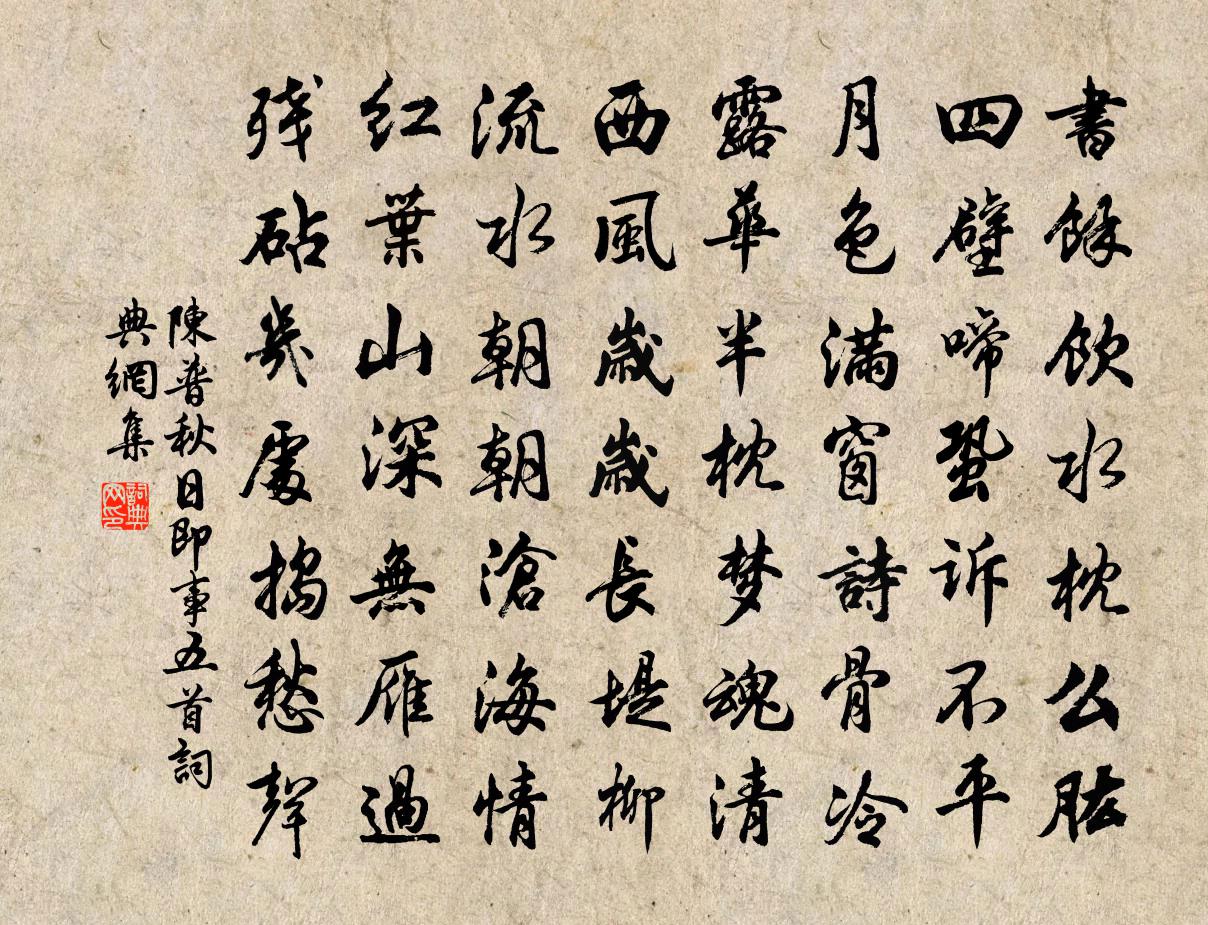 書餘飲水枕么肱
四壁啼蛩訴不平
月色滿窗詩骨冷
露華半枕梦魂清
西風歲歲長堤柳
流水朝朝滄海情
紅葉山深無雁過
残砧幾處搗愁聲
陳普秋日即事五首詞
典網集
詞典
网印